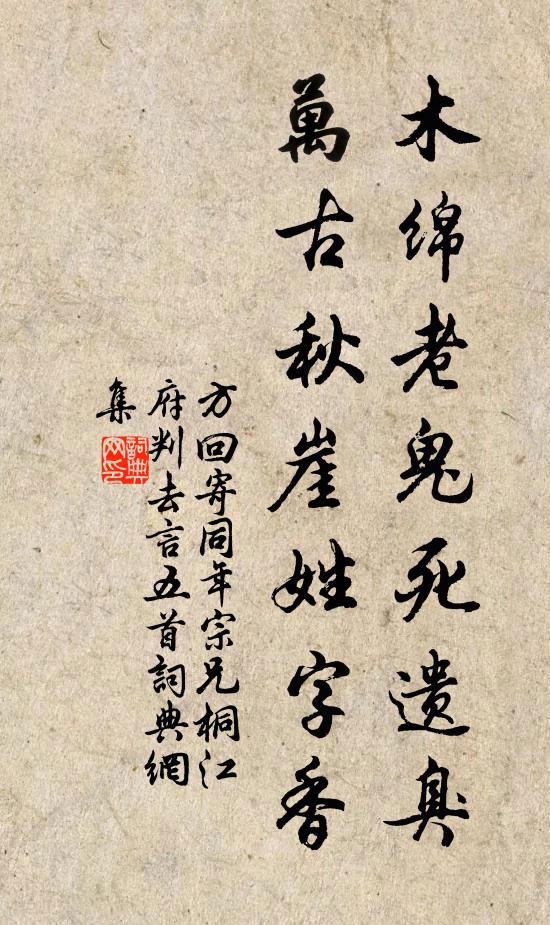 木绵老鬼死遗臭
萬古秋崖姓字香
方回寄同年宗兄桐江
府判去言五首詞典網
集
詞典網印